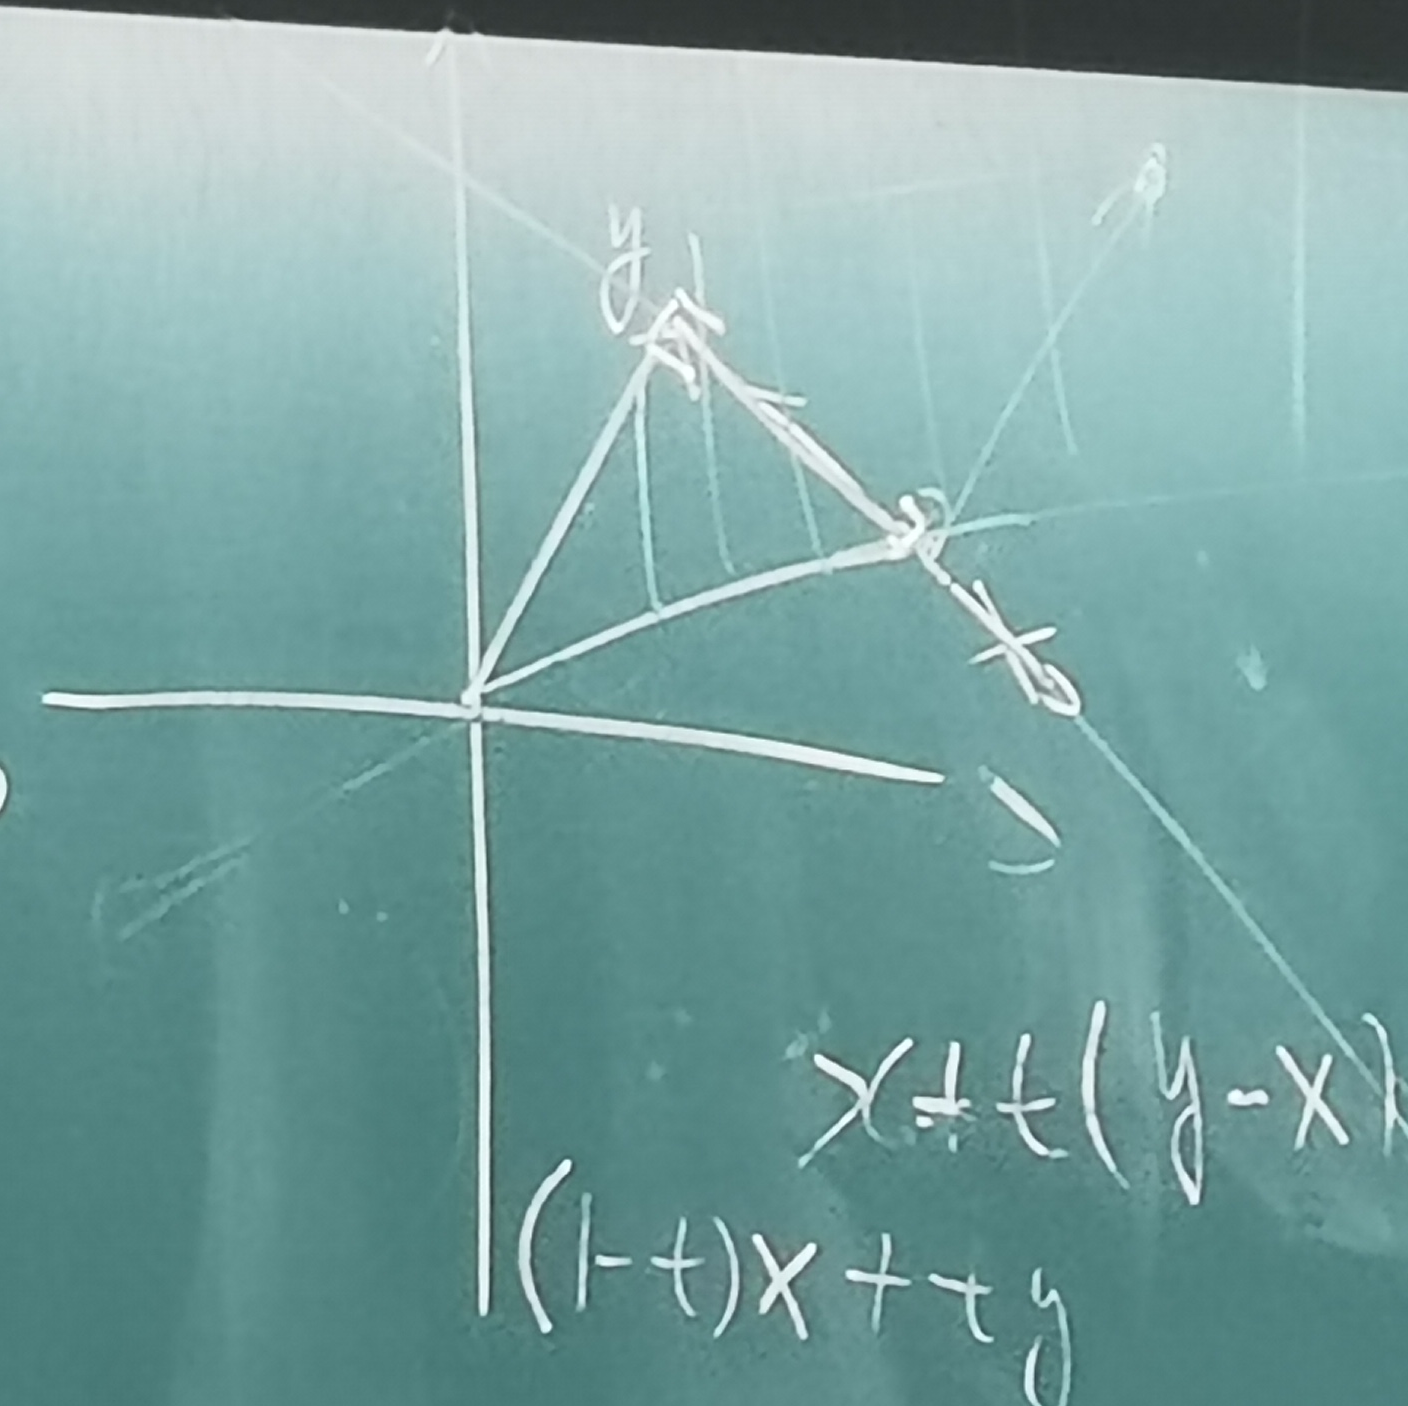 y
x
x + t(y-x)
(1-t)x + ty